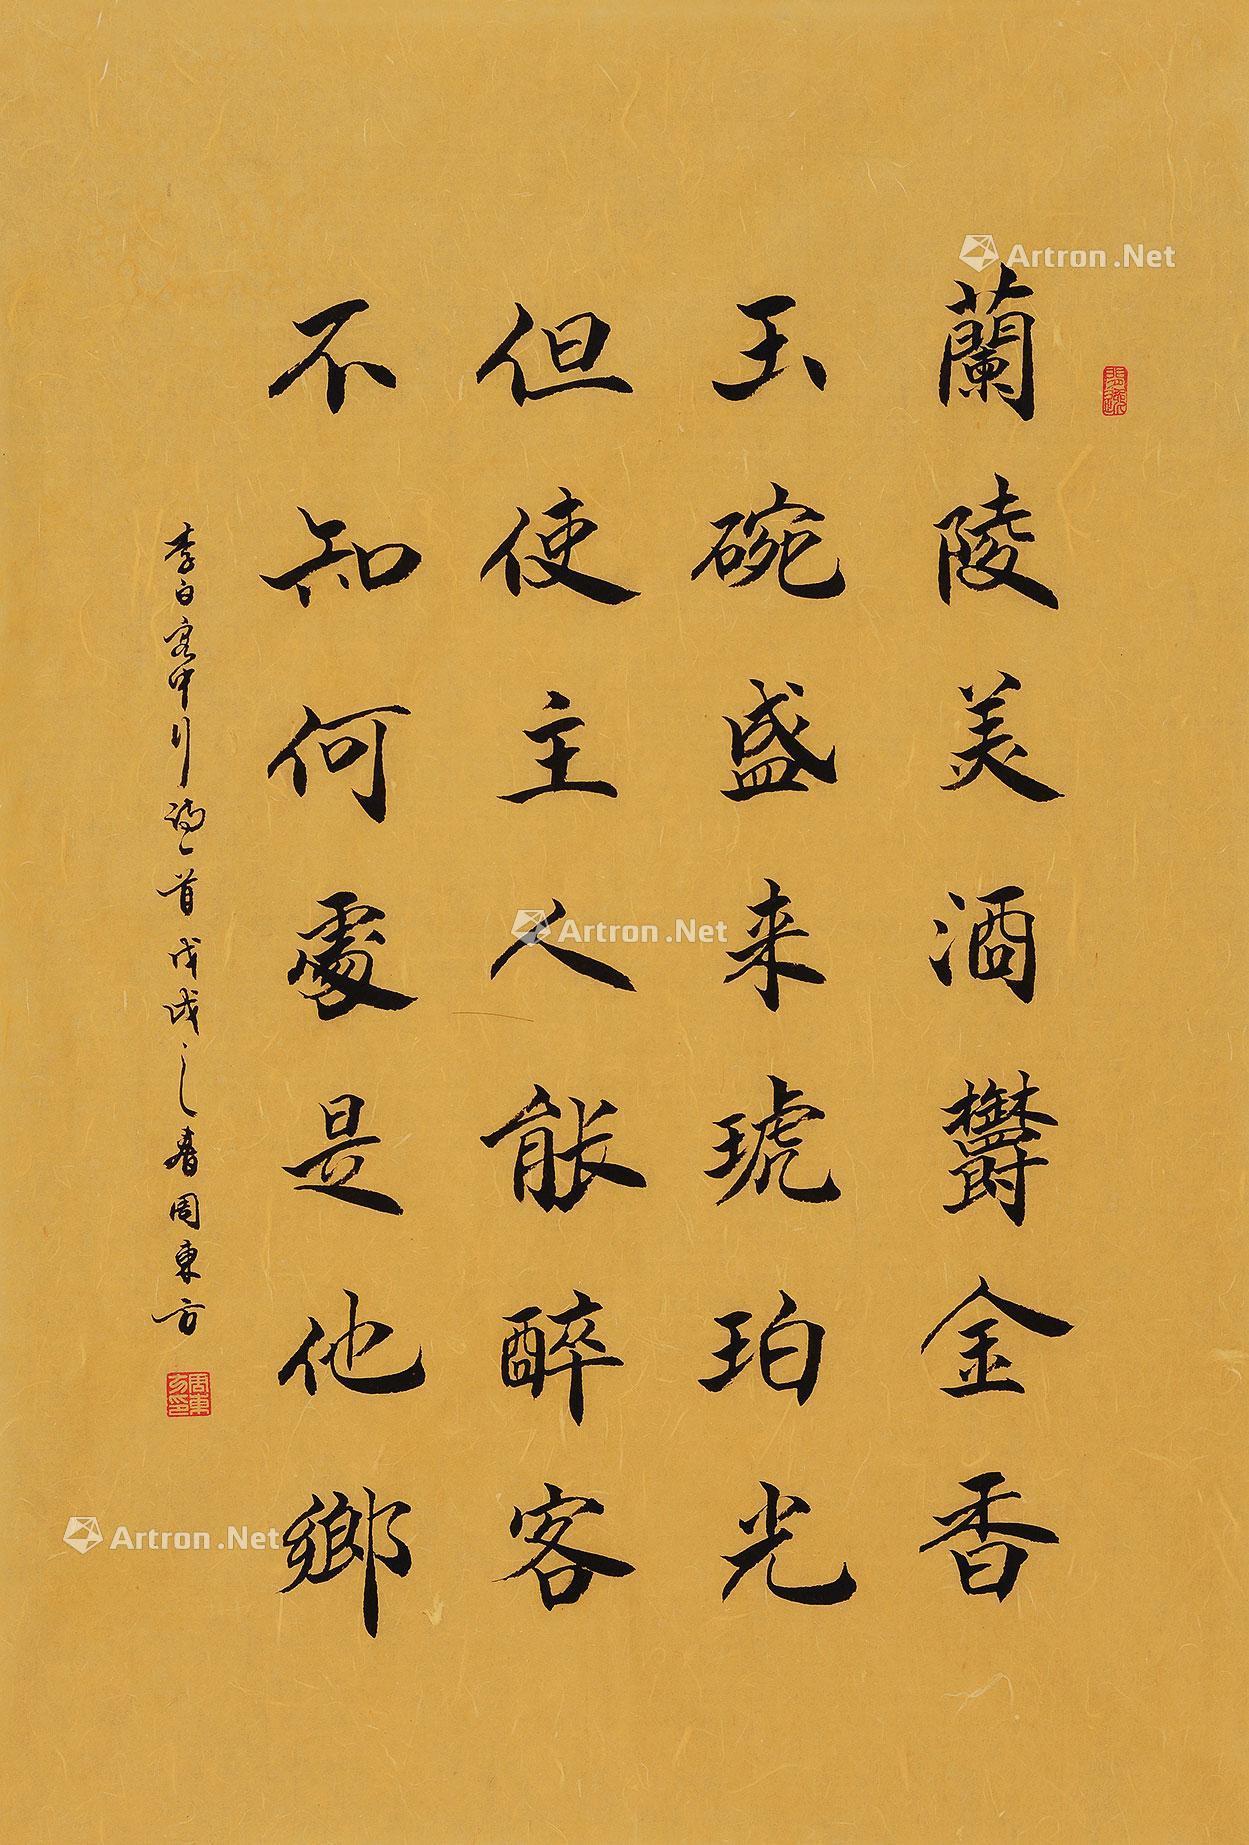 蘭陵美酒鬱金香
玉碗盛来琥珀光
但使主人能醉客
不知何處是他鄉
李白客中行詩一首戊戌之春周東方
周東方印
Artron.Net
Artron.Net
Artron.Net